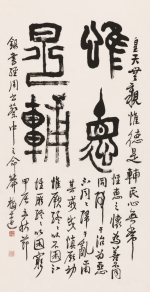 惟悳
是輔
皇天無親惟德是輔民心無常
惟惠之懷為善不同
同歸于治為惡
不同同歸于亂爾
其戒哉慎厥初
惟厥終終以不困不
惟厥終終以困窮
錄書經周書蔡仲之命